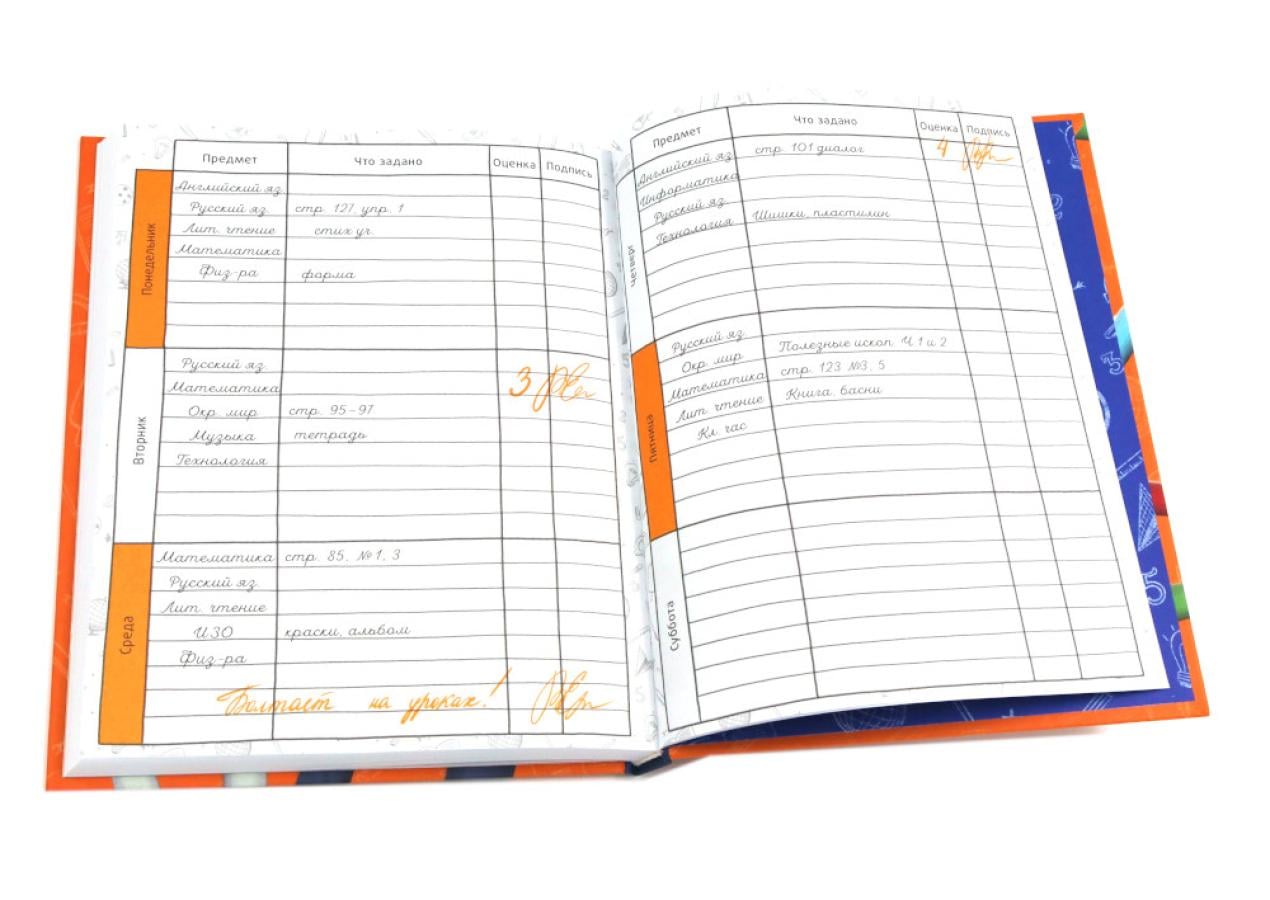 Предмет Что задано Оценка Подпись
Понедельник
Английский яз.
Русский яз. стр. 127, упр. 1
Лит. чтение стих уч.
Математика
Физ-ра форма
Вторник
Русский яз.
Математика 3
Окр. мир стр. 95-97
Музыка тетрадь
Технология
Среда
Математика стр. 85, №1, 3
Русский яз.
Лит. чтение
ИЗО краски, альбом
Физ-ра
Болтает на уроках!
Предмет Что задано Оценка Подпись
Четверг
Английский яз. стр. 101 диалог 4
Информатика
Русский яз.
Технология Шишки, пластилин
Пятница
Русский яз.
Окр. мир Полезные ископ. Ч. 1 и 2
Математика стр. 123 №3, 5
Лит. чтение Книга, басни
Кл. час
Суббота